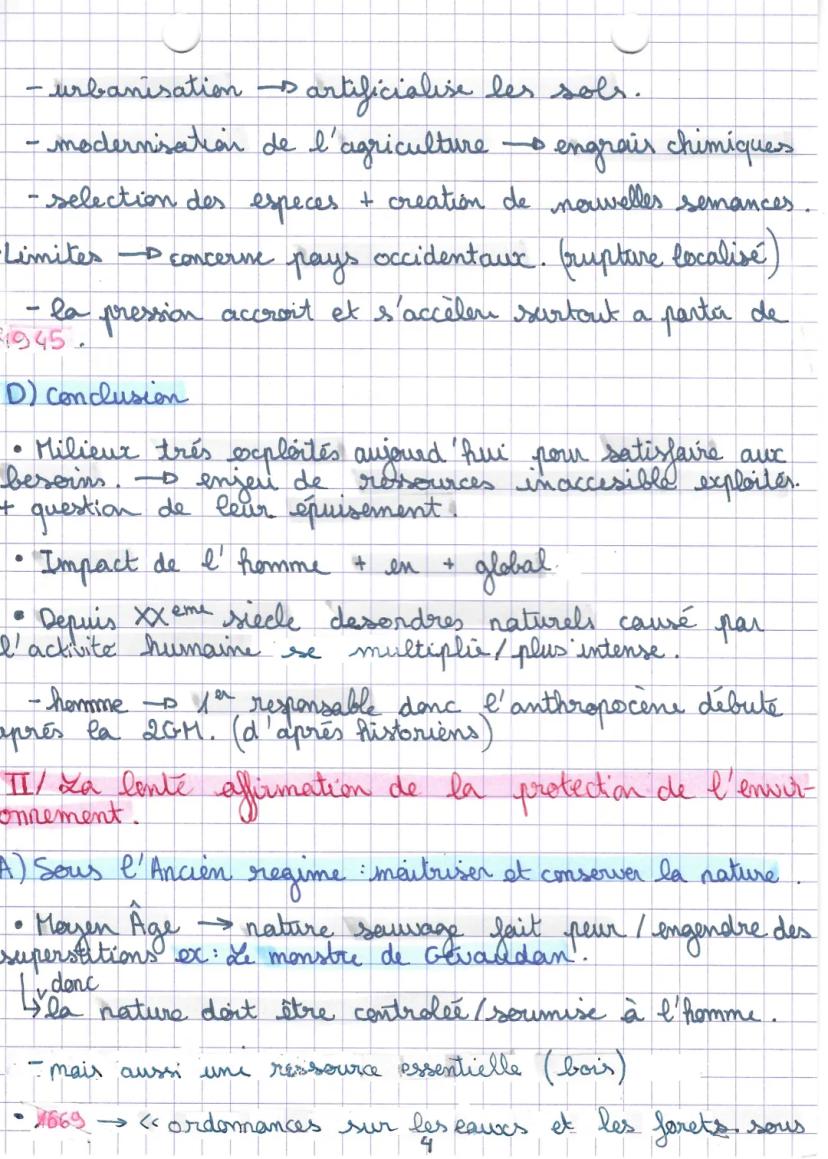 - urbanisation → artificialise les sols.
- modernisation de l'agriculture → engrais chimiques
- selection des especes + creation de nouvelles semances.
Limites → concerne pays occidentaux. (rupture localisé)
- la pression accroit et s'accèlere surtout a partir de
1945.
D) Conclusion
• Milieux trés exploités aujourd'hui pour satisfaire aux
besoins. → enjeu de ressources inaccesible exploités.
+ question de leur épuisement.
• Impact de l'homme + en + global.
• Depuis XXeme siecle desordres naturels causé par
l'activité humaine se multiplie/plus intense.
- homme → 1er responsable donc l'anthropocène débute
aprés la 2GM. (d'aprés historiens)
II/ La lente affirmation de la protection de l'envir-
onnement.
A) Sous l'Ancien regime : maitriser et conserver la nature.
• Moyen Âge → nature sauvage fait peur / engendre des
superstitions ex: Le monstre de Gévaudan.
donc
↳ la nature doit être controlée/soumise à l'homme.
- mais aussi une ressource essentielle (bois)
• 1669 → « ordonnances sur les eaux et les forets sous
4